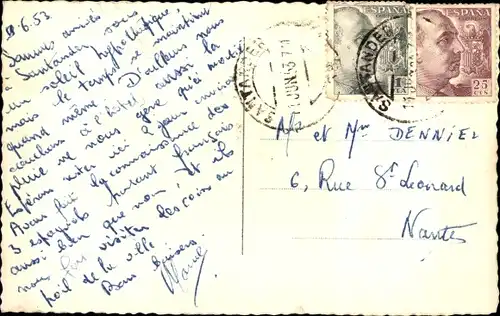 8.6.53
Sommes arrivés
à Santander sous
un soleil hypothétique,
mais le temps se maintient
quand même. D'ailleurs nous
couchons à l'hôtel aussi la
pluie ne nous gêne qu'à moitié
Espérons rester ici 2 jours environ
Avons fait la connaissance des
3 espagnols parlant français
aussi bien que nous, et ils
nous font visiter les coins au
poil de la ville
Bons baisers.
ESPAÑA
ESPAÑA
25
CTS
SANTANDER
SANTANDER
Mr et Mme DENNIEL
6, Rue St Leonard
Nantes